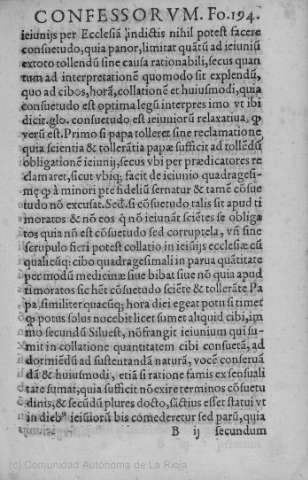 CONFESSORVM. Fo.194.
ieiunijs per Ecclesiā indictis nihil potest facere
consuetudo, quia panor, limitat quātū ad ieiuniū
ex toto tollendū sine causa rationabili, secus quan
tum ad interpretationē quomodo sit explendū,
quo ad cibos, horā, collationē et huiusmodi, quia
consuetudo est optima legū interpres imo vt ibi
dicit.glo. consuetudo est ieiuniorū relaxatiua, ꝙ
verū est. Primo si papa tolleret sine reclamatione
quia scientia & tollerātia papæ sufficit ad tollēdū
obligationē ieiunij, secus vbi per prædicatores re
clamaret, sicut vbiq; facit de ieiunio quadragesi-
mę ꝙ à minori pte fidelium seruatur & tamē cōsue
tudo nō excusat. Sed si cōsuetudo talis sit apud ti
moratos & nō eos ꝙ nō ieiunāt sciētes se obliga
tos quia nō est cōsuetudo sed corruptela, vñ sine
scrupulo fieri potest collatio in ieiunijs ecclesiæ cū
qualicūq; cibo quadragesimali in parua quātitate
per modū medicinæ siue bibat siue nō quia apud
timoratos sic hēt cōsuetudo sciēte & tollerāte Pa
pa, similiter quacūq; hora diei egeat potu si timet
ꝙ potus solus nocebit licet sumet aliquid cibi, im
mo secundū Siluest. nō frangit ieiunium qui su-
mit in collatione quantitatem cibi consuetā, ad
dormiēdū ad sustentandā naturā, vocē conserua
dā & huiusmodi, etiā si ratione famis ex sensuali
tate sumat, quia sufficit nō exire terminos cōsuetu
dinis, & secūdū plures docto, sāctius esset statui vt
in dieb⁹ ieiuniorū bis comederetur sed parū, quia
B ij secundum
(c) Comunidad Autónoma de La Rioja